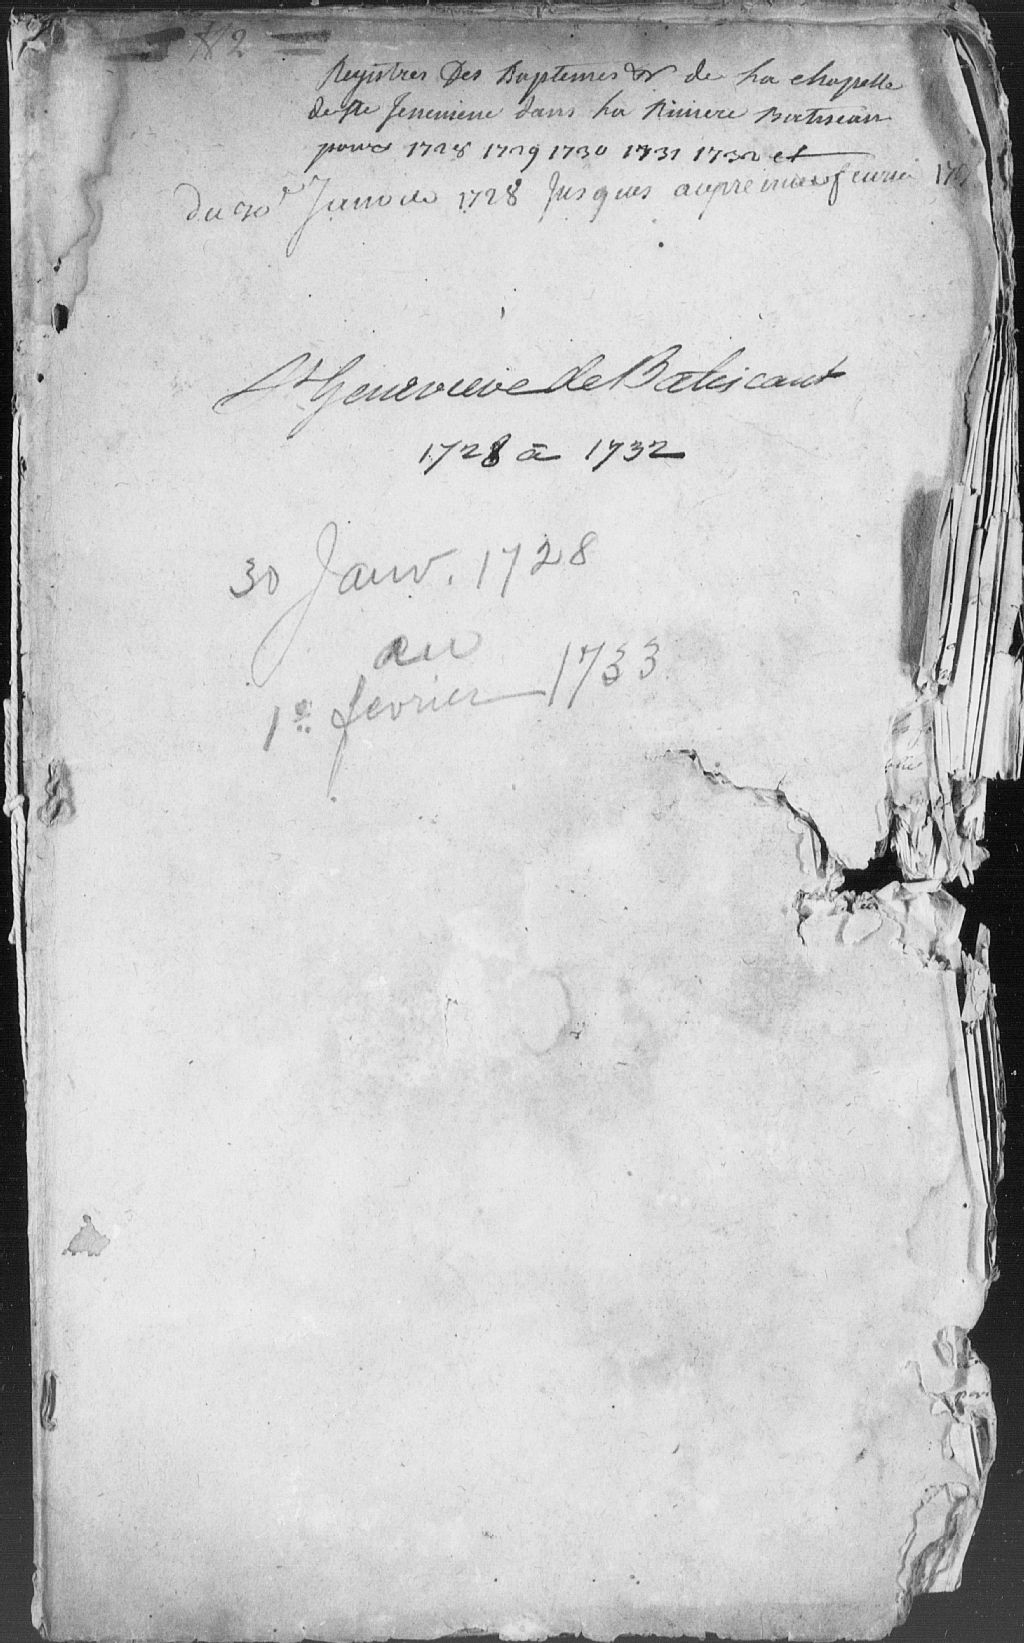 N 2
Registres Des Baptemes & de La chapelle
de Ste Jenevieve dans La Riviere Batiscan
pour 1728 1729 1730 1731 1732 et
du 30e Janvier 1728 Jusques au premier fevrier 17
Ste Genevieve de Batiscant
1728 à 1732
30 Janv. 1728
au
1er fevrier 1733